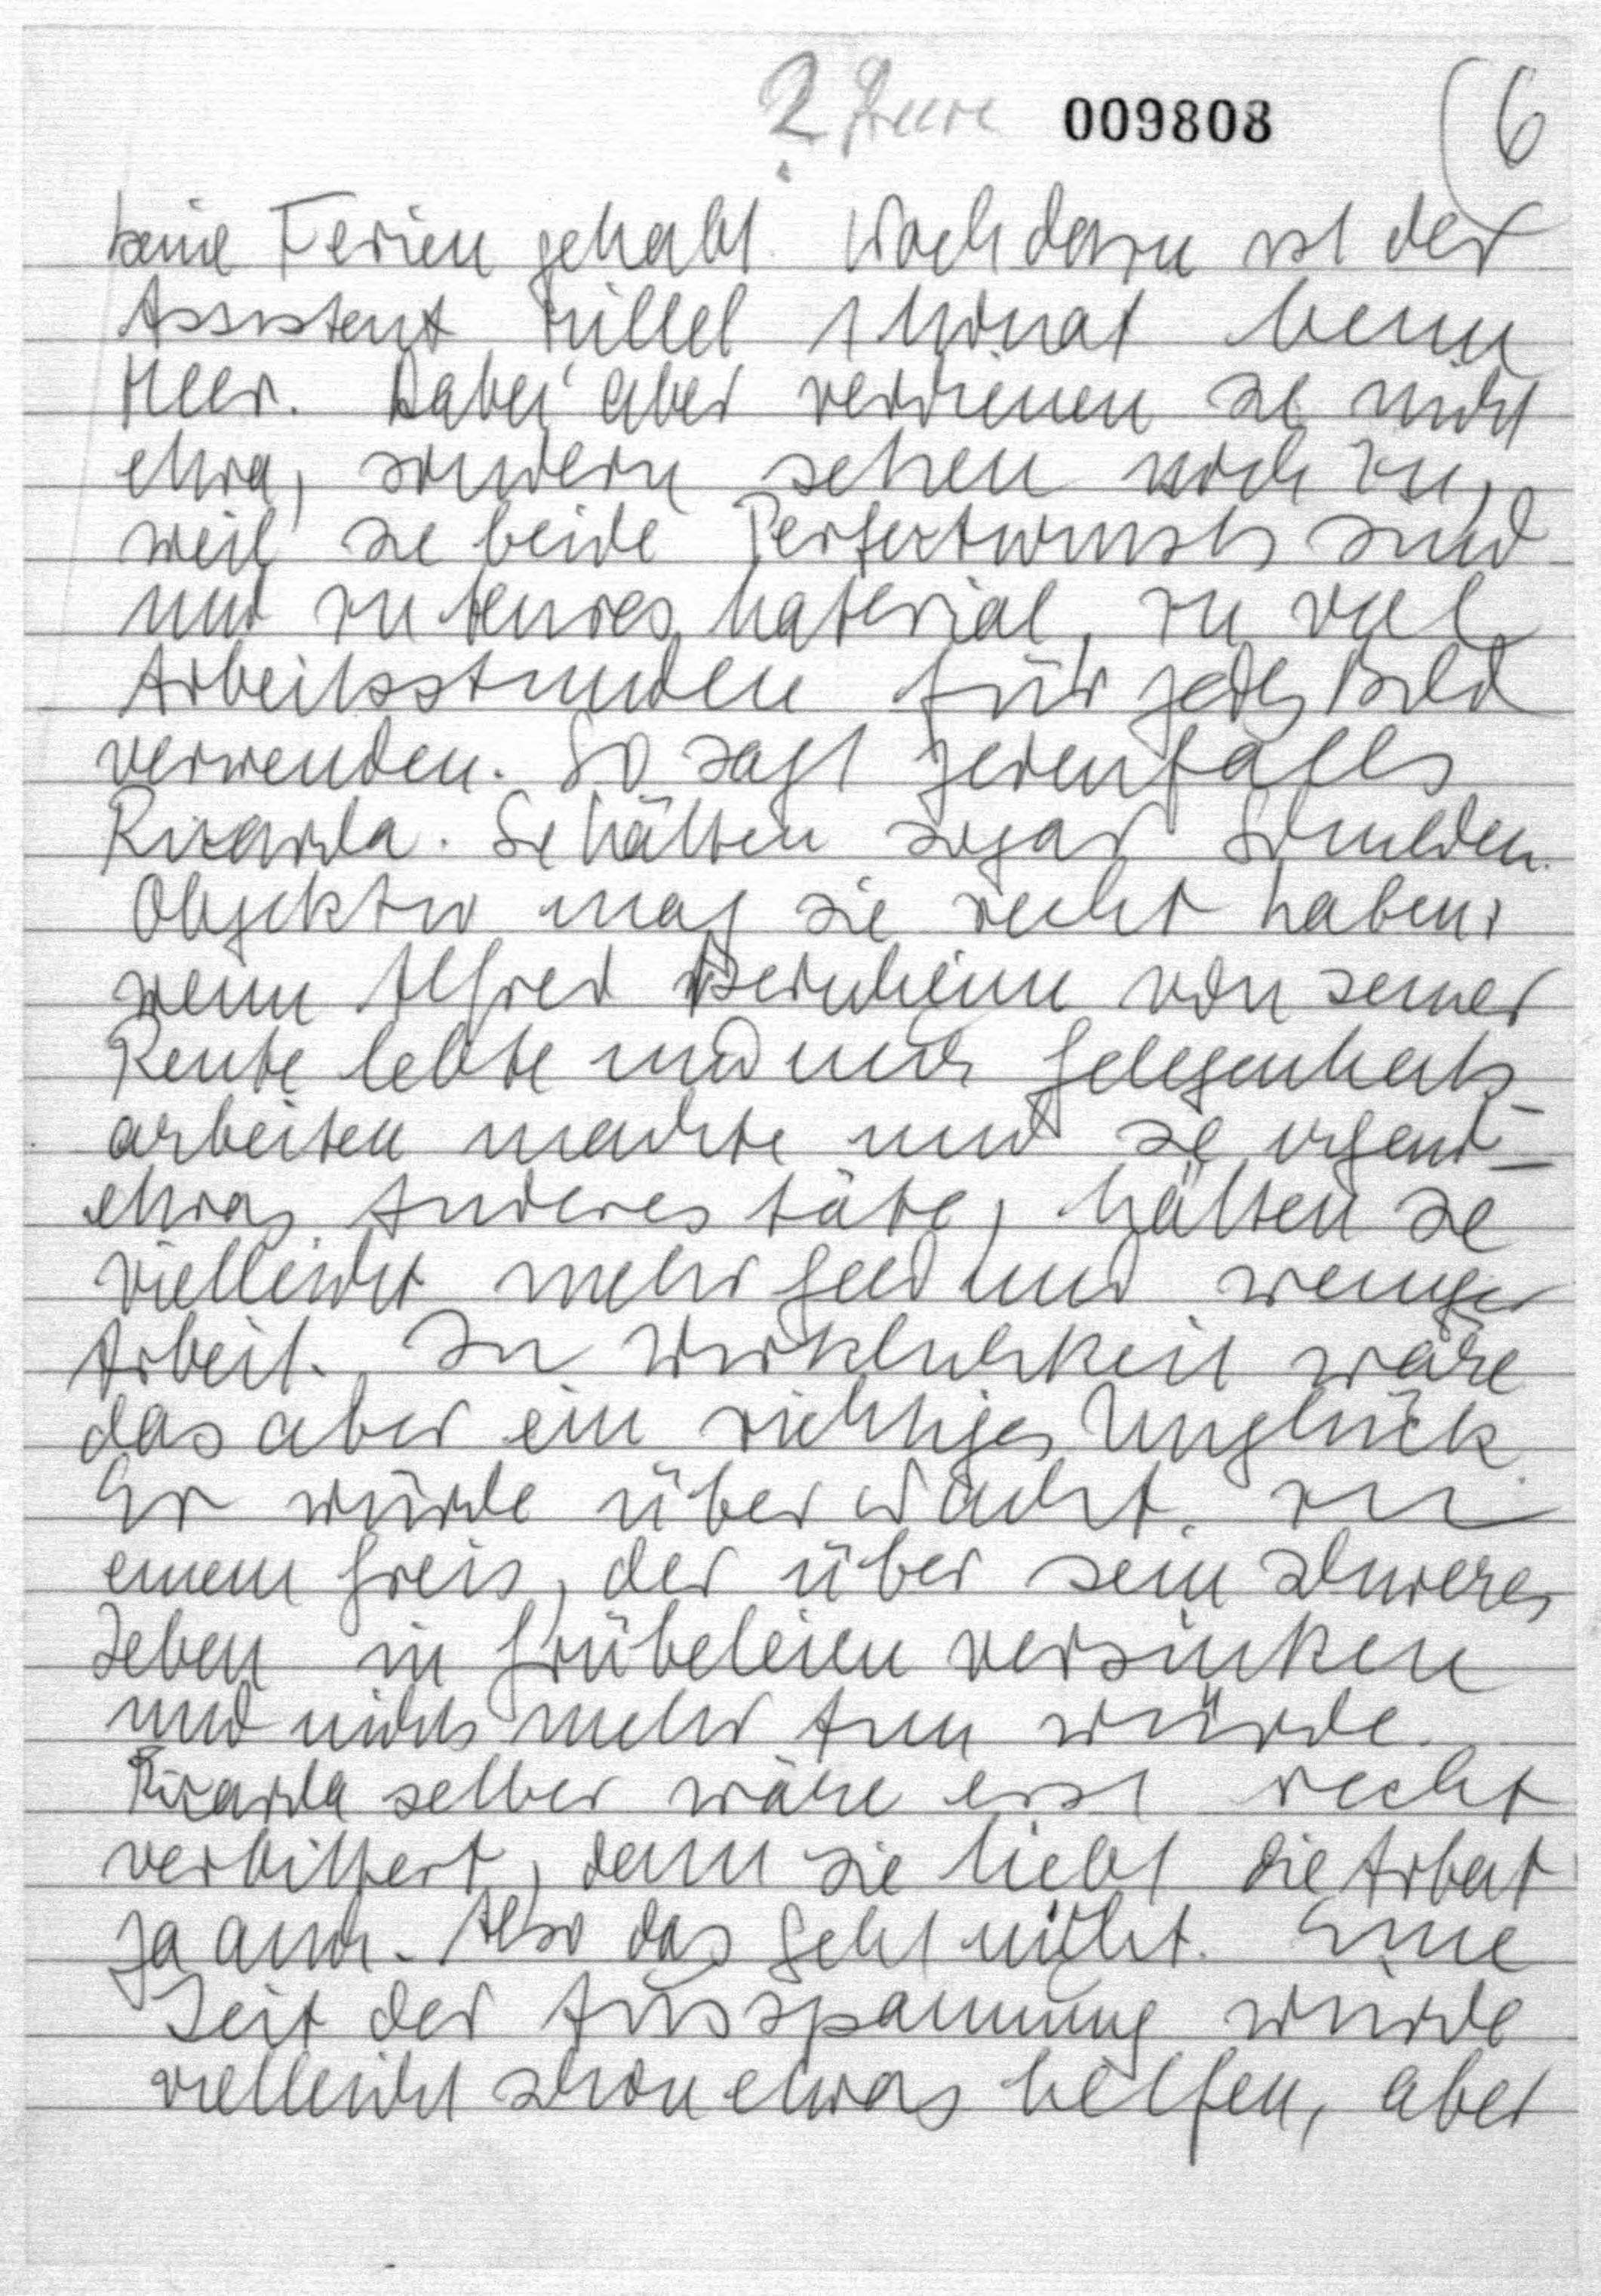 2 009808 (6
keine Ferien gehabt. Noch dazu ist der
Assistent Hillel 1 Monat beim
Heer. Dabei aber verdienen sie nicht
etwa, sondern setzen noch zu,
weil sie beide Perfektionists sind
und zu teures Material, zu viel
Arbeitsstunden für jedes Bild
verwenden. So sagt jedenfalls
Ricarda. Sie hätten sogar Schulden.
Objektiv mag sie recht haben:
wenn Alfred Bernheim von seiner
Rente lebte und nur Gelegenheits-
arbeiten machte und sie irgend-
etwas Anderes täte, hätten sie
vielleicht mehr Geld und weniger
Arbeit. In Wirklichkeit wäre
das aber ein richtiges Unglück.
Er würde über Nacht zu
einem Greis, der über sein schweres
Leben in Grübeleien versinken
und nichts mehr tun würde.
Ricarda selber wäre erst recht
verbittert, denn sie liebt die Arbeit
ja auch. Also das geht nicht. Eine
Zeit der Ausspannung würde
vielleicht schon etwas helfen, aber